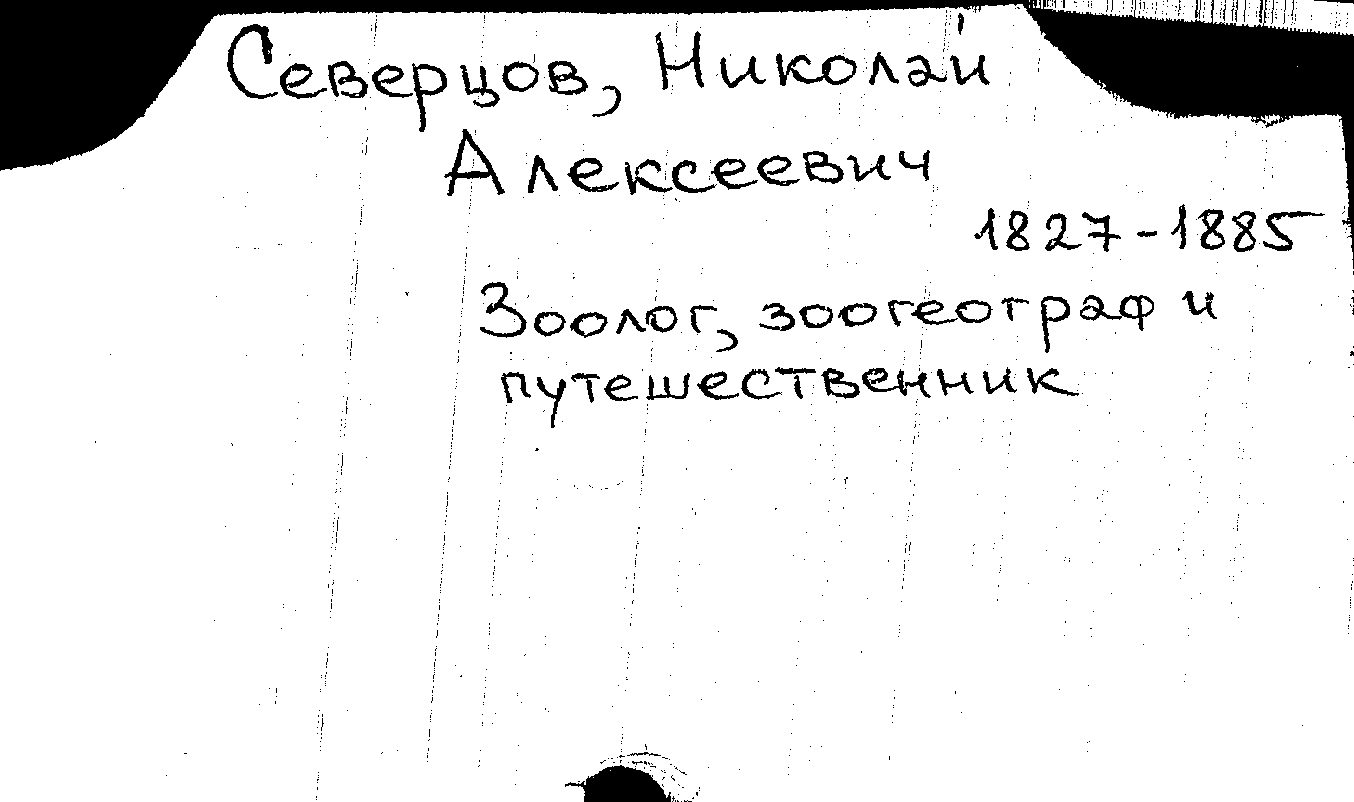 Северцов, Николай
Алексеевич
1827-1885
Зоолог, зоогеограф и
путешественник